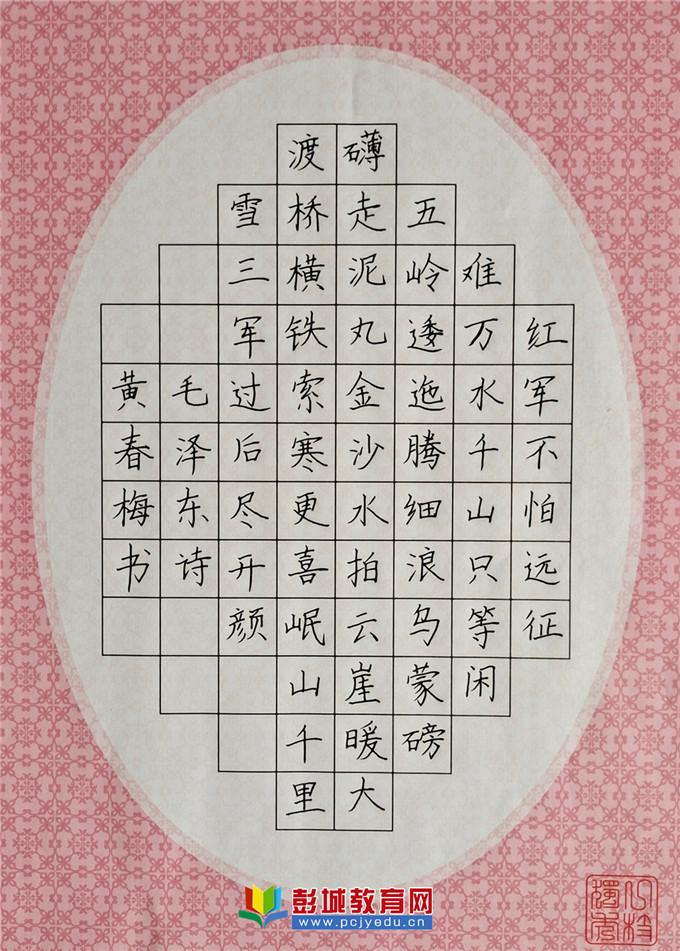 红军不怕远征
难万水千山只等闲
五岭逶迤腾细浪乌蒙磅
礴走泥丸金沙水拍云崖暖大
渡桥横铁索寒更喜岷山千里
雪三军过后尽开颜
毛泽东诗
黄春梅书
彭城教育网
www.pcjyedu.cn